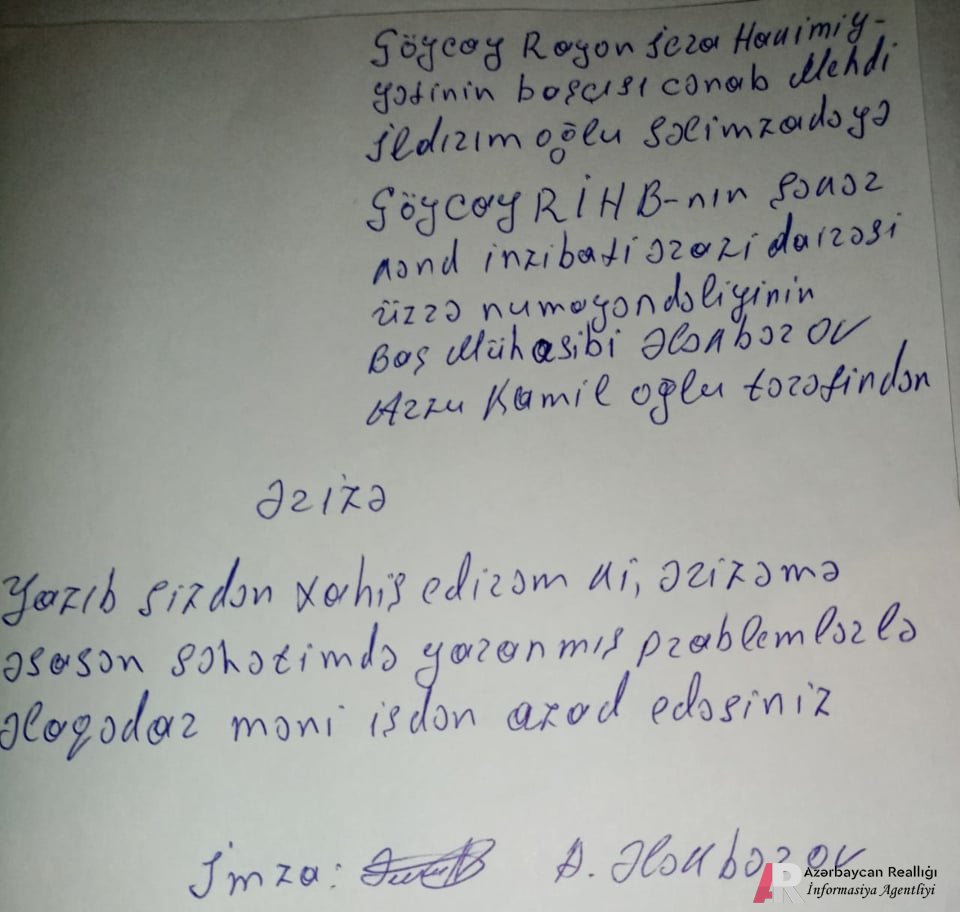 Göycay Rayon İcra Hakimiy-
yətinin başçısı cənab Mehdi
İldırım oğlu Səlimzadəyə
Göycay RİHB-nın Şəkər
kənd inzibati ərazi dairəsi
üzrə numayəndəliyinin
Baş Mühasibi Ələkbərov
Arzu Kamil oğlu tərəfindən
Ərizə
Yazıb sizdən xahiş edirəm ki, ərizəmə
əsasən səhətimdə yaranmış prablemlərlə
əlaqədar məni işdən azad edəsiniz
İmza: A. Ələkbərov
Azərbaycan Reallığı
İnformasiya Agentliyi